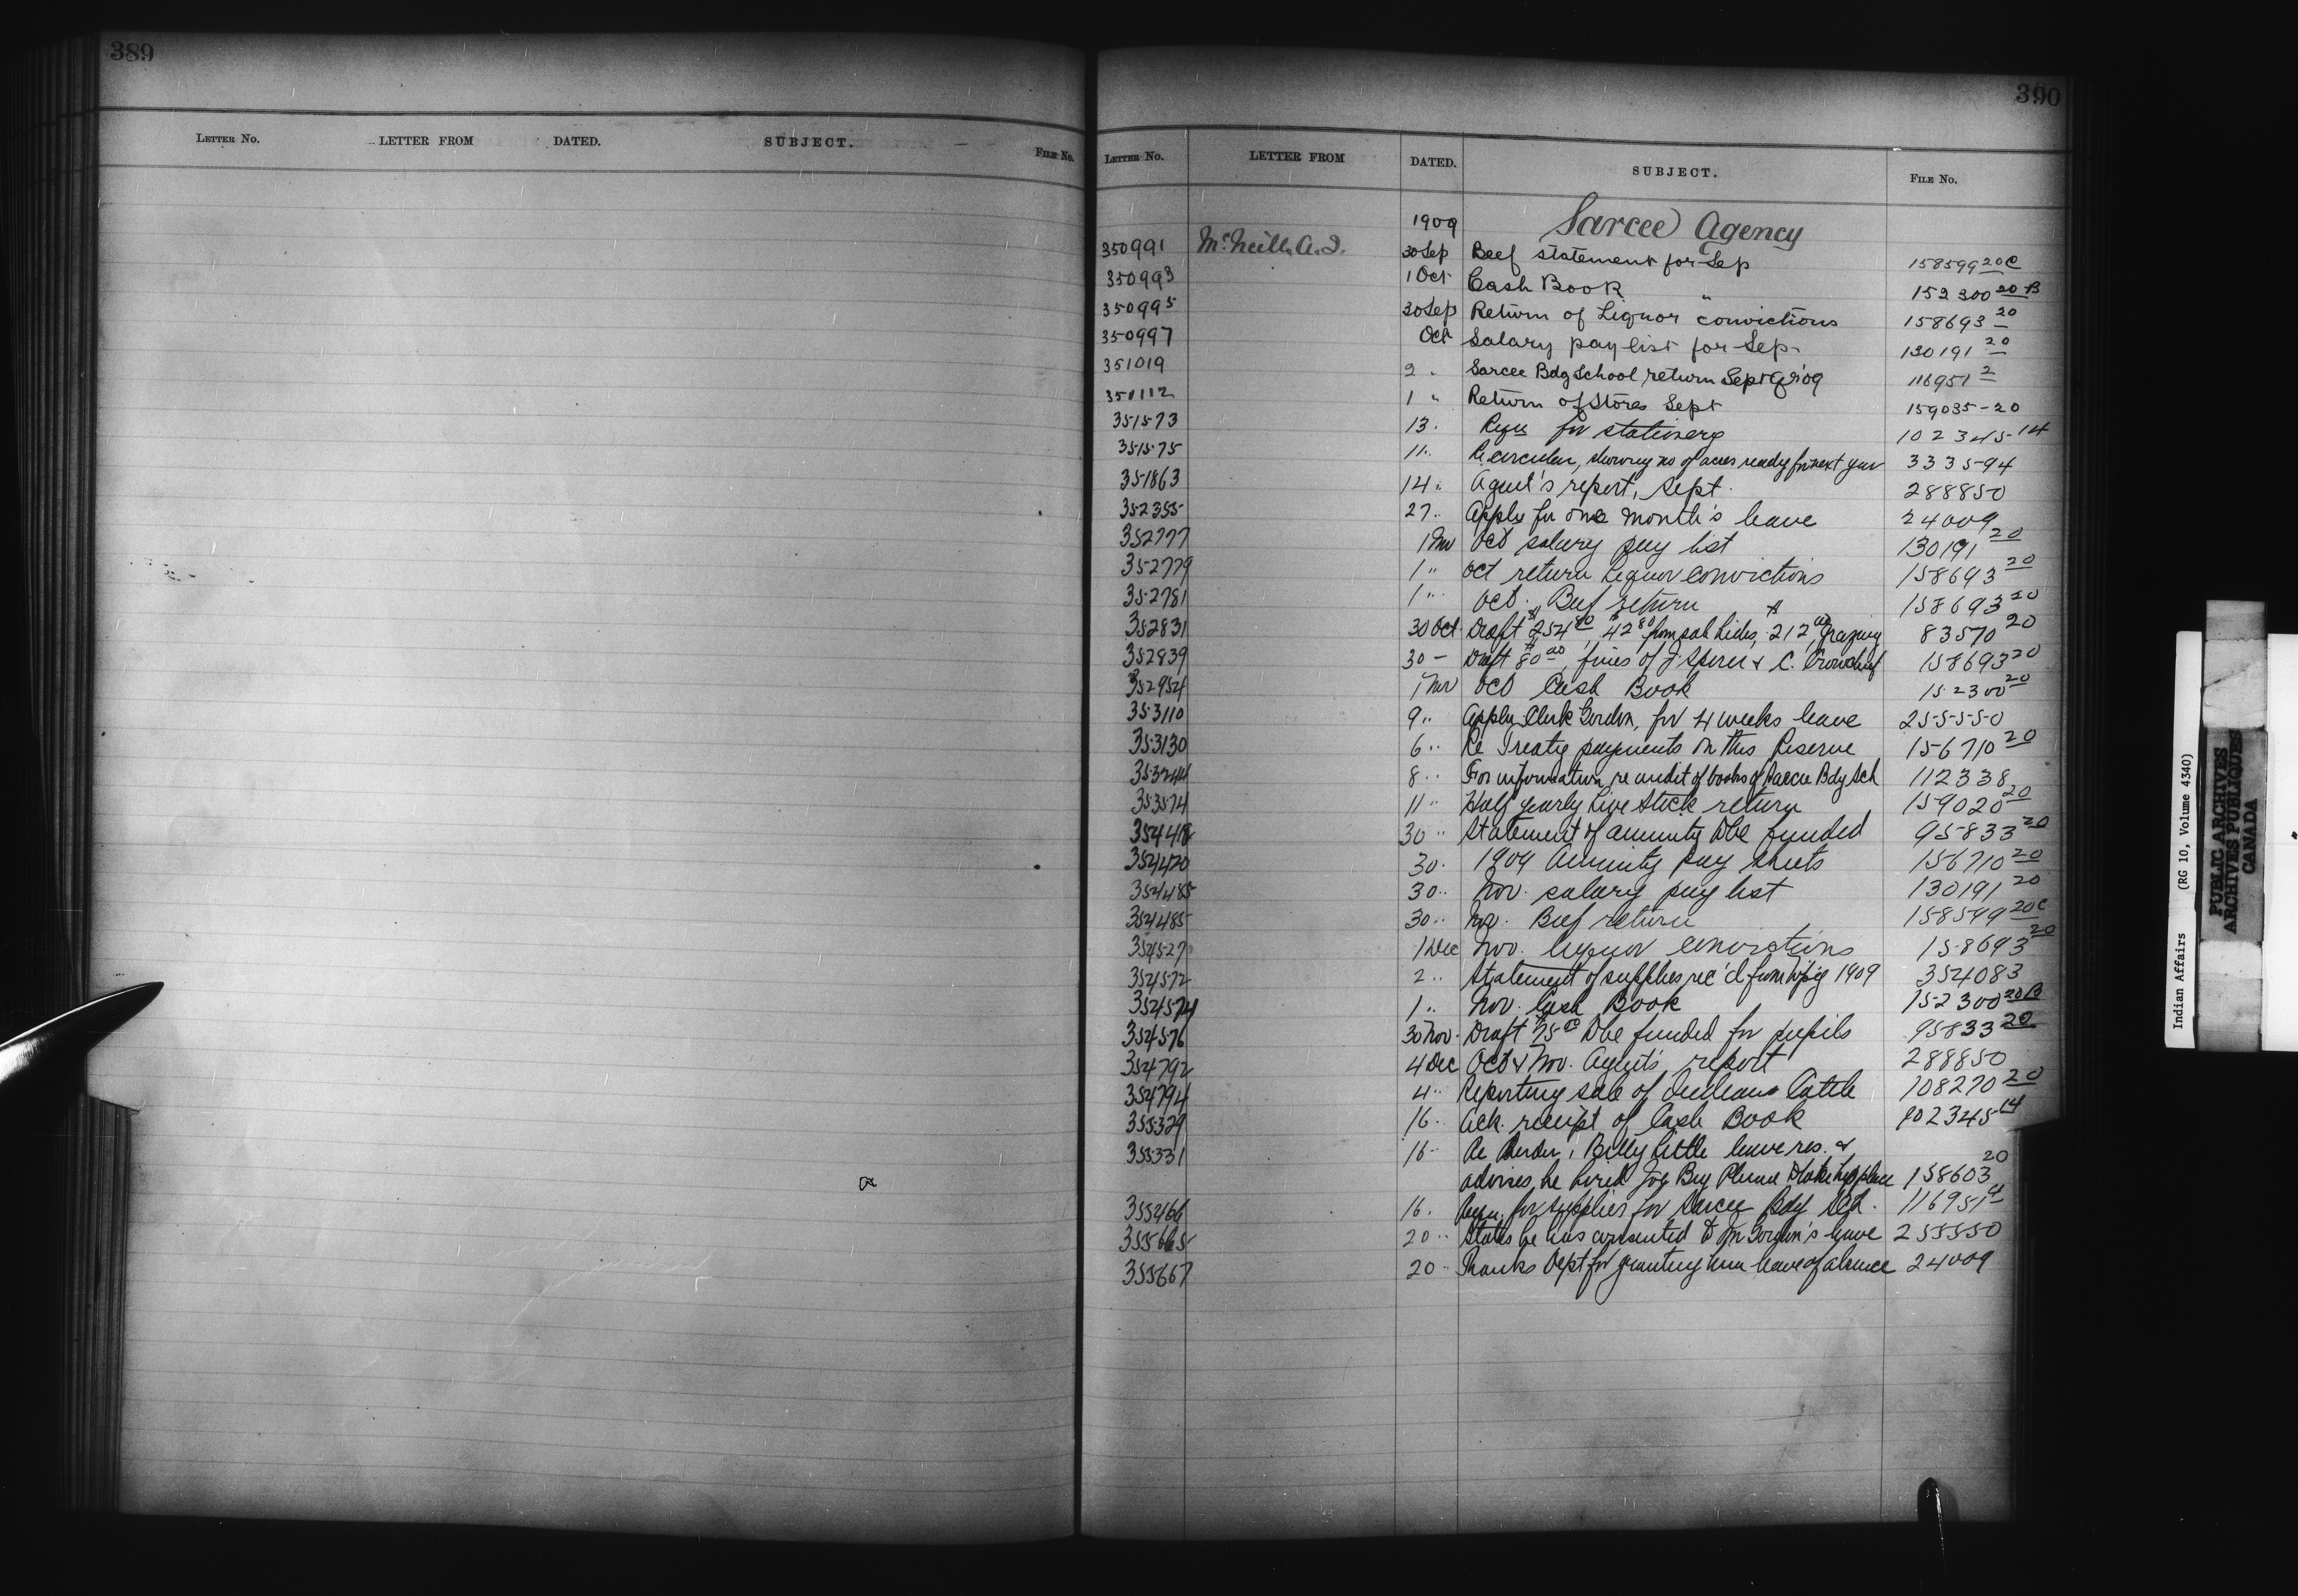 389
LETTER No. LETTER FROM DATED. SUBJECT. FILE No.
390
LETTER No. LETTER FROM DATED. SUBJECT. FILE No.
1909 Sarcee Agency
350991 McNeill A.J. 30 Sep Beef statement for Sep 158599 20C
350993 1 Oct Cash Book " 152300 20 B
350995 30 Sep Return of Liquor convictions 158693 20
350997 Oct Salary pay list for Sep. 130191 20
351019 2 " Sarcee Bdg School return Sept Qr '09 116951 2
351112 1 " Return of Stores Sept 159035-20
351573 13. Requ for stationery 102345-14
351575 11.. Re circular, showing no of acres ready for next year 333594
351863 14.. Agent's report, Sept. 288850
352355 27.. Apply for one month's leave 24009
352777 1 Nov Oct salary pay list 130191 20
352779 1 .. Oct return Liquor convictions 158693 20
352781 1 .. Oct. Beef return 158693 20
352831 30 Oct. Draft $254 80, $42 80 from sale hides, 212 00 Grazing 83570 20
352839 30 - Draft $80 00, fines of J. Spencer & C. Crowchief 158693 20
352954 1 Nov Oct Cash Book 152300 20
353110 9.. Apply Clerk Gordon, for 4 weeks leave 255550
353130 6.. Re Treaty payments on this Reserve 156710 20
353244 8.. For information re audit of books of Sarcee Bdg Sch 112338
353574 11.. Half yearly Live Stock return 159020 20
354418 30.. Statement of annuity to be funded 95833 20
354420 30. 1909 Annuity pay sheets 156710 20
354485 30.. Nov. salary pay list 130191 20
354485 30.. Nov. Beef return 158599 20C
354527 1 Dec Nov. liquor convictions 158693 20
354572 2.. Statement of supplies rec'd from Wpg 1909 354083
354574 1.. Nov. Cash Book 152300 20B
354576 30 Nov. Draft $75 to be funded for pupils 95833 20
354792 4 Dec Oct & Nov. Agent's report 288850
354794 4.. Reporting sale of Indians Cattle 108270 20
355329 16. Ack. receipt of Cash Book 102345-14
355331 16.. Re Herder, Billy Little leave res. &
advises he hired Joe Big Plume to take his place 158603 20
355466 16. Requ. for supplies for Sarcee Bdg Sch. 116951 4
355665 20.. States he has consented to Mr Gordon's leave 255550
355667 20.. Thanks Dept for granting him leave of absence 24009
Indian Affairs (RG 10, Volume 4340)
PUBLIC ARCHIVES
ARCHIVES PUBLIQUES
CANADA